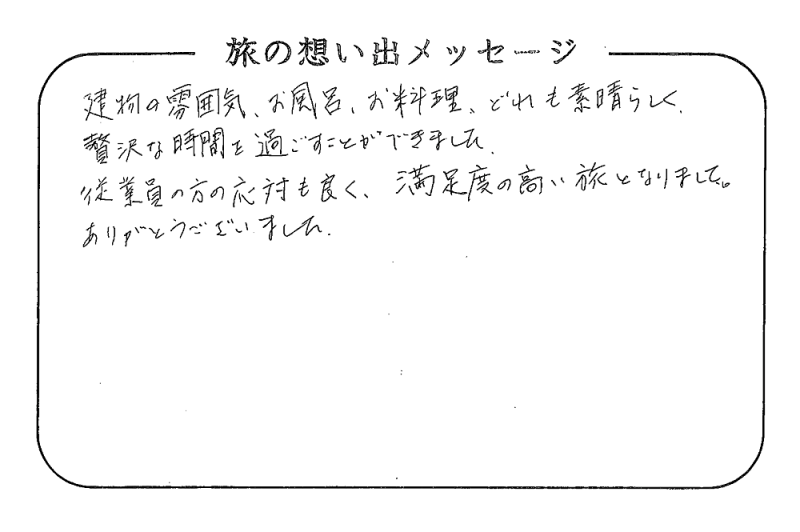 旅の想い出メッセージ
建物の雰囲気、お風呂、お料理、どれも素晴らしく、
贅沢な時間を過ごすことができました。
従業員の方の応対も良く、満足度の高い旅となりました。
ありがとうございました。